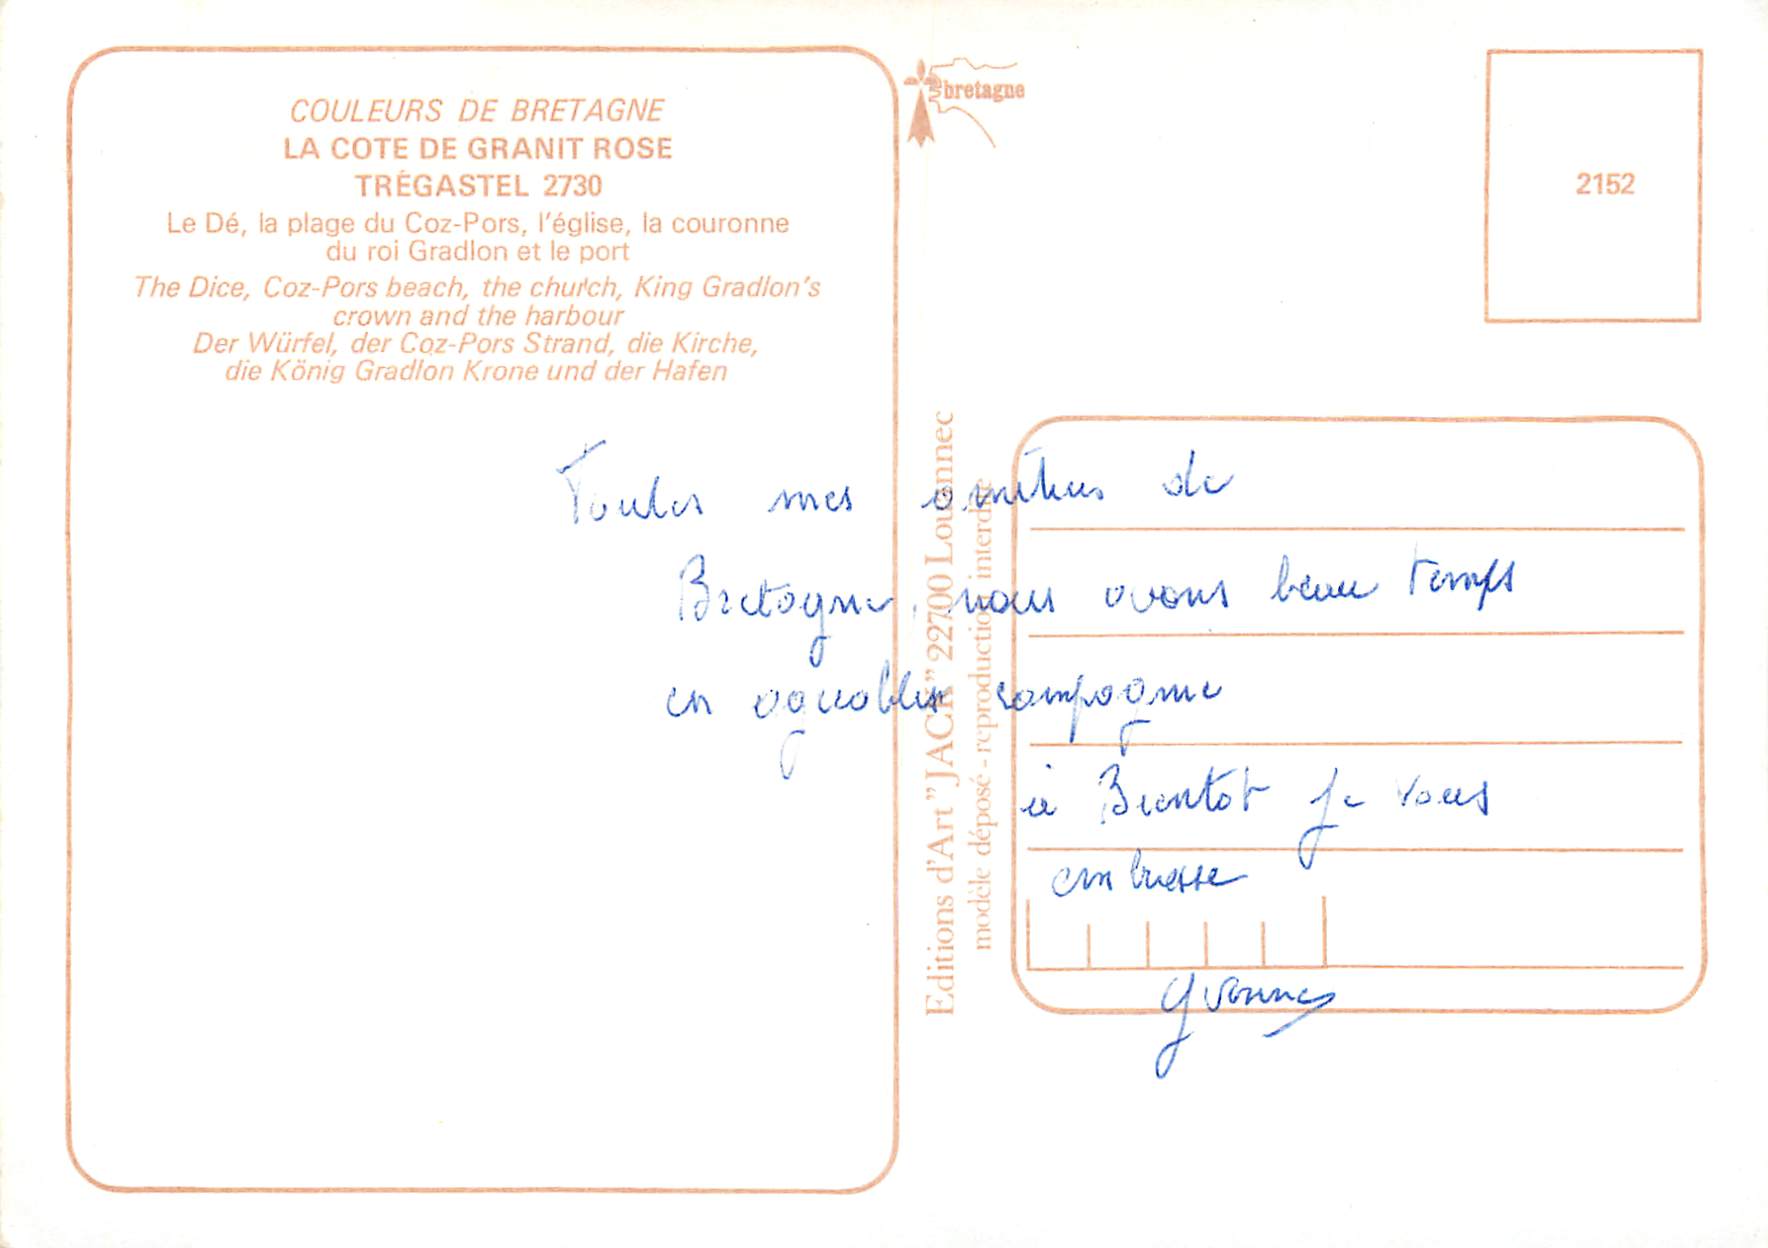 COULEURS DE BRETAGNE
LA COTE DE GRANIT ROSE
TRÉGASTEL 2730
Le Dé, la plage du Coz-Pors, l'église, la couronne
du roi Gradlon et le port
The Dice, Coz-Pors beach, the church, King Gradlon's
crown and the harbour
Der Würfel, der Coz-Pors Strand, die Kirche,
die König Gradlon Krone und der Hafen
bretagne
2152
Editions d'Art "JACK" 22700 Louannec
modèle déposé - reproduction interdite
Toutes mes amitiés de
Bretagne, nous avons beau temps
en agréable compagnie
à Bientot je vous
embrasse
Yvonne